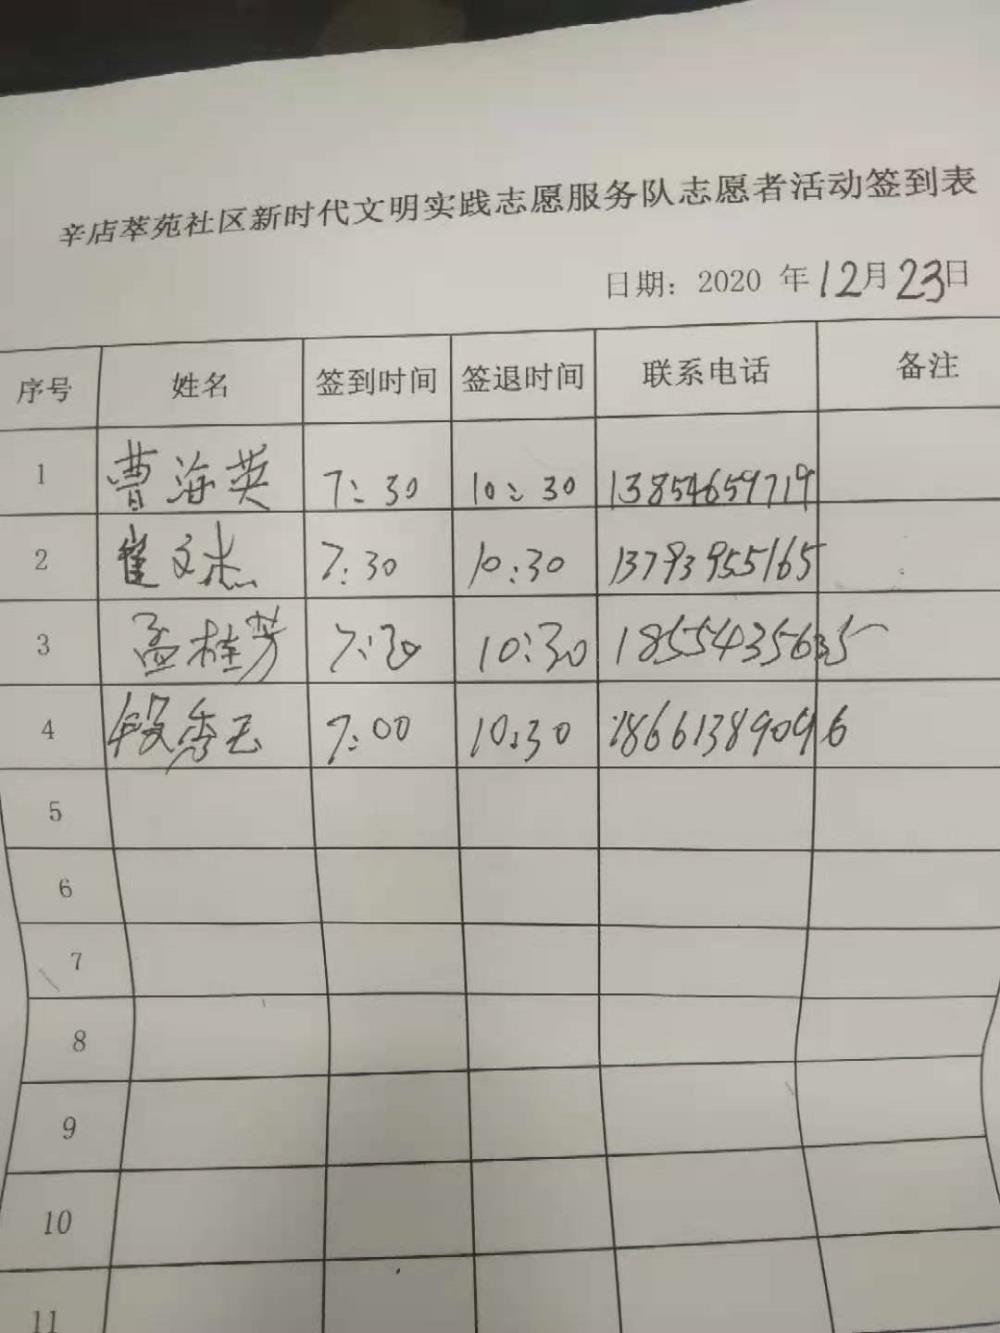 辛店萃苑社区新时代文明实践志愿服务队志愿者活动签到表
日期：2020 年12月23日
序号 姓名 签到时间 签退时间 联系电话 备注
1 曹海英 7:30 10:30 13854659719
2 崔文杰 7:30 10:30 13793955165
3 孟桂芳 7:30 10:30 18554356335
4 段秀玉 7:00 10:30 18661389096
5
6
7
8
9
10
11